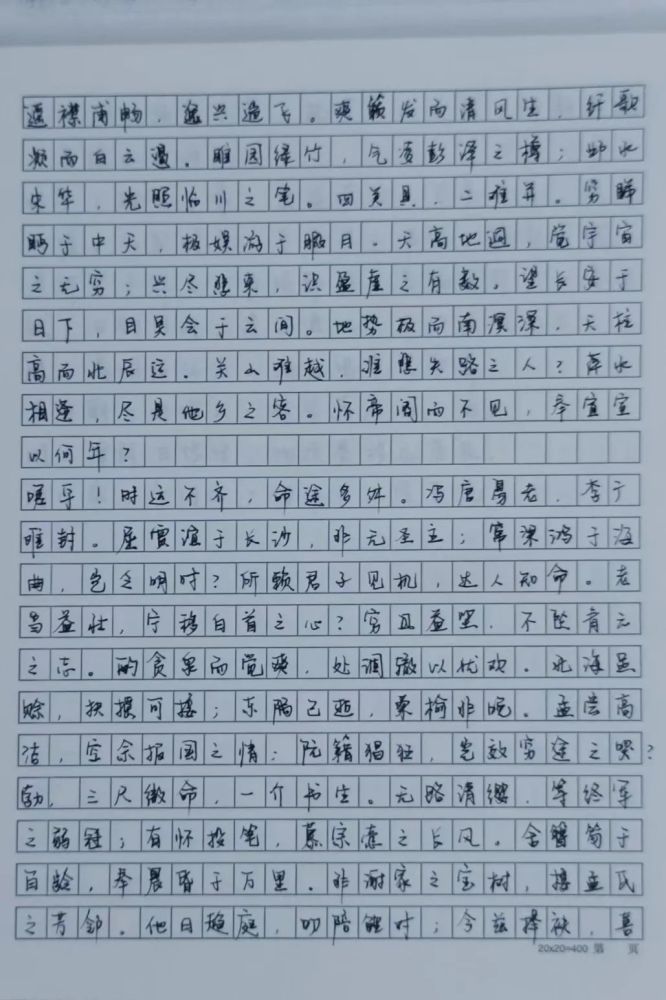 遥襟甫畅，逸兴遄飞。爽籁发而清风生，纤歌
凝而白云遏。睢园绿竹，气凌彭泽之樽；邺水
朱华，光照临川之笔。四美具，二难并。穷睇
眄于中天，极娱游于暇日。天高地迥，觉宇宙
之无穷；兴尽悲来，识盈虚之有数。望长安于
日下，目吴会于云间。地势极而南溟深，天柱
高而北辰远。关山难越，谁悲失路之人？萍水
相逢，尽是他乡之客。怀帝阍而不见，奉宣室
以何年？
嗟乎！时运不齐，命途多舛。冯唐易老，李广
难封。屈贾谊于长沙，非无圣主；窜梁鸿于海
曲，岂乏明时？所赖君子见机，达人知命。老
当益壮，宁移白首之心？穷且益坚，不坠青云
之志。酌贪泉而觉爽，处涸辙以犹欢。北海虽
赊，扶摇可接；东隅已逝，桑榆非晚。孟尝高
洁，空余报国之情；阮籍猖狂，岂效穷途之哭？
勃，三尺微命，一介书生。无路请缨，等终军
之弱冠；有怀投笔，慕宗悫之长风。舍簪笏于
百龄，奉晨昏于万里。非谢家之宝树，接孟氏
之芳邻。他日趋庭，叨陪鲤对；今兹捧袂，喜
20×20=400 第 页